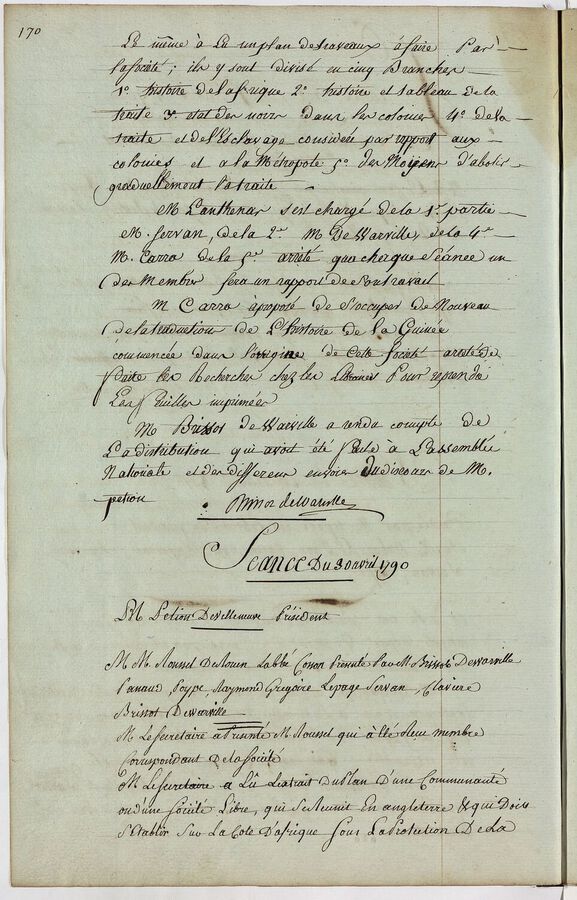 170
Le même à lu un plan de travaux à faire Par
la société ; ils y sont divisé en cinq Branches
1º histoire de lafrique 2º histoire et tableau de la
traite 3º etat des noirs dans les colonies 4º de la
traite et de l'Esclavage considérée par rapport aux
colonies et a la Métropole 5º des Moyens d'abolir
graduellement la traite
M Lanthenas s'est chargé de la 1re partie
M. Servan, de la 2e M DeWarville, de la 4e
M. Carra de la 5e arrêté qua chaque séance un
des Membres fera un rapport de son travail
M Carra à proposé de s'occuper de Nouveau
de la traduction de L'histoire de la Guinée
commencée dans l'origine de cette société arrêté de
faite les Recherches chez les Libraires Pour reprendre
Les feuilles imprimées
M Brissot de Warville a rendu compte de
La distribution qui avoit été faite à L'assemblée
Nationale et des differens envois du discours de M.
petion
Brissot deWarville
Séance Du 30 avril 1790
M Petion Devilleneuve Président
M M. Roussel De Rouen Labbé Cosson Présenté Par M Brissot Dewarville
Panaud, Poype, Raymond Gregoire Lepage Servan, Claviere
Brissot Dewarville
M Le Secretaire a Présenté M Roussel qui à été élu membre
Correspondant De la Société
M Le Secretaire a Lû L'extrait Du Plan D'une Communauté
ou d'une Société Libre, qui se Reunit En angleterre & qui Doit
S'Etablir Sur La Cote D'afrique Sous La Protection De La